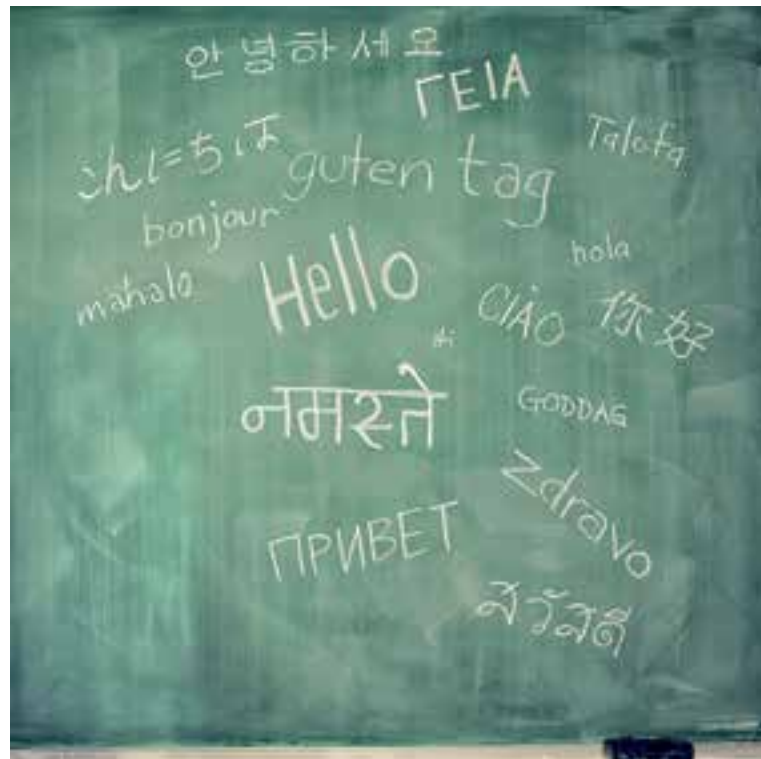 안녕하세요
ΓΕΙΑ
Talofa
guten tag
bonjour
hola
mahalo
Hello
CIÀO
你好
नमस्ते
GODDAG
zdravo
ПРИВЕТ
สวัสดี